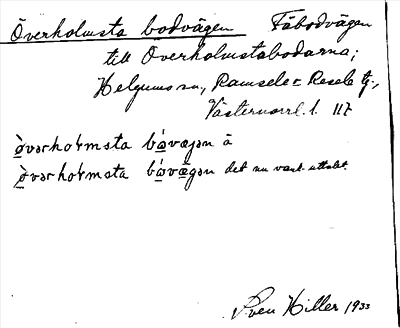 Överholmsta bodvägen Fäbodvägen
till Överholmstabodarna;
Helgums sn, Ramsele o. Resele tg.,
Västernorrl. l. 117
ò̱vərhoɫmsta bó̱væ̱jən ä
ò̱vərhoɫmsta bó̱væ̱gən det nu vanl. uttalet.
Sven Hiller 1933